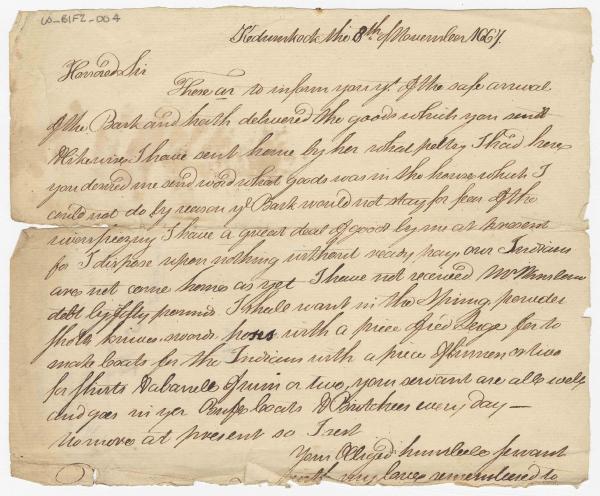 LO-61F2-004
the 8th of November 1667.
Honored Sir
These are to inform you yt. of the safe arrival
of the Bark and hath delivered the goods which you sent
& likewise I have sent home by her what peltry I had here
you desired me send word what goods was in the house which I
could not do by reason ye Bark would not stay for fear of the
I have a great deal of goods by me at present
for I dispose upon nothing without ready pay, our Indians
are not come home as yet I have not received Mr Winslow
debt by fifty pound I shall want in the Spring, powder
shott knives swords with a piece of red Sege for to
make Coats for the Indians with a piece of linnen or two
for shirts & a barrel of rum or two, your servant are all well
and goes in yer Coats & Britches every day —
no more at present so I rest
Your Obliged humble servant
with my love remembered to